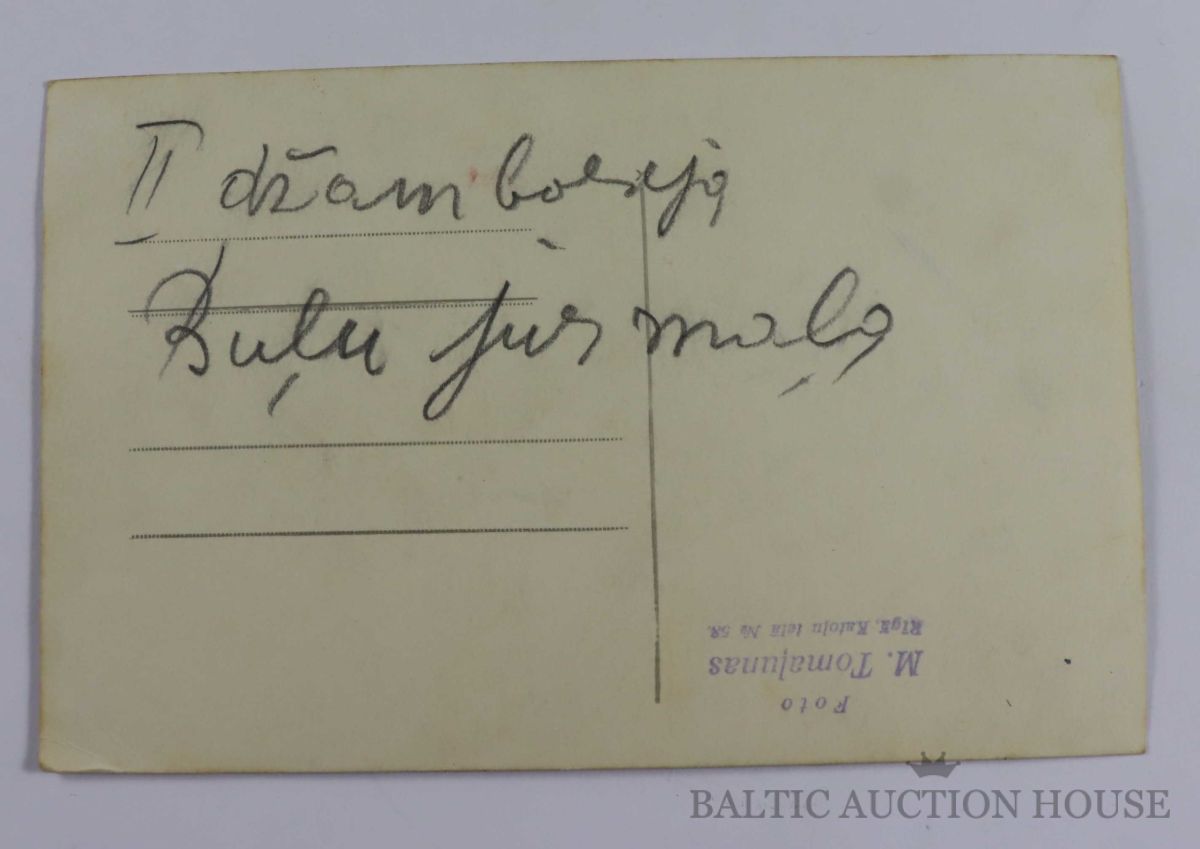 II džamborejā
Buļu jūrmalā
Foto
M. Tomaļunas
Rīgā, Katoļu ielā № 58.
BALTIC AUCTION HOUSE